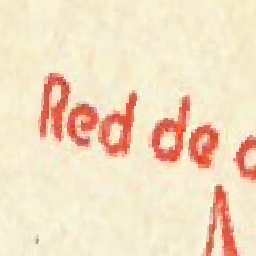 Red de